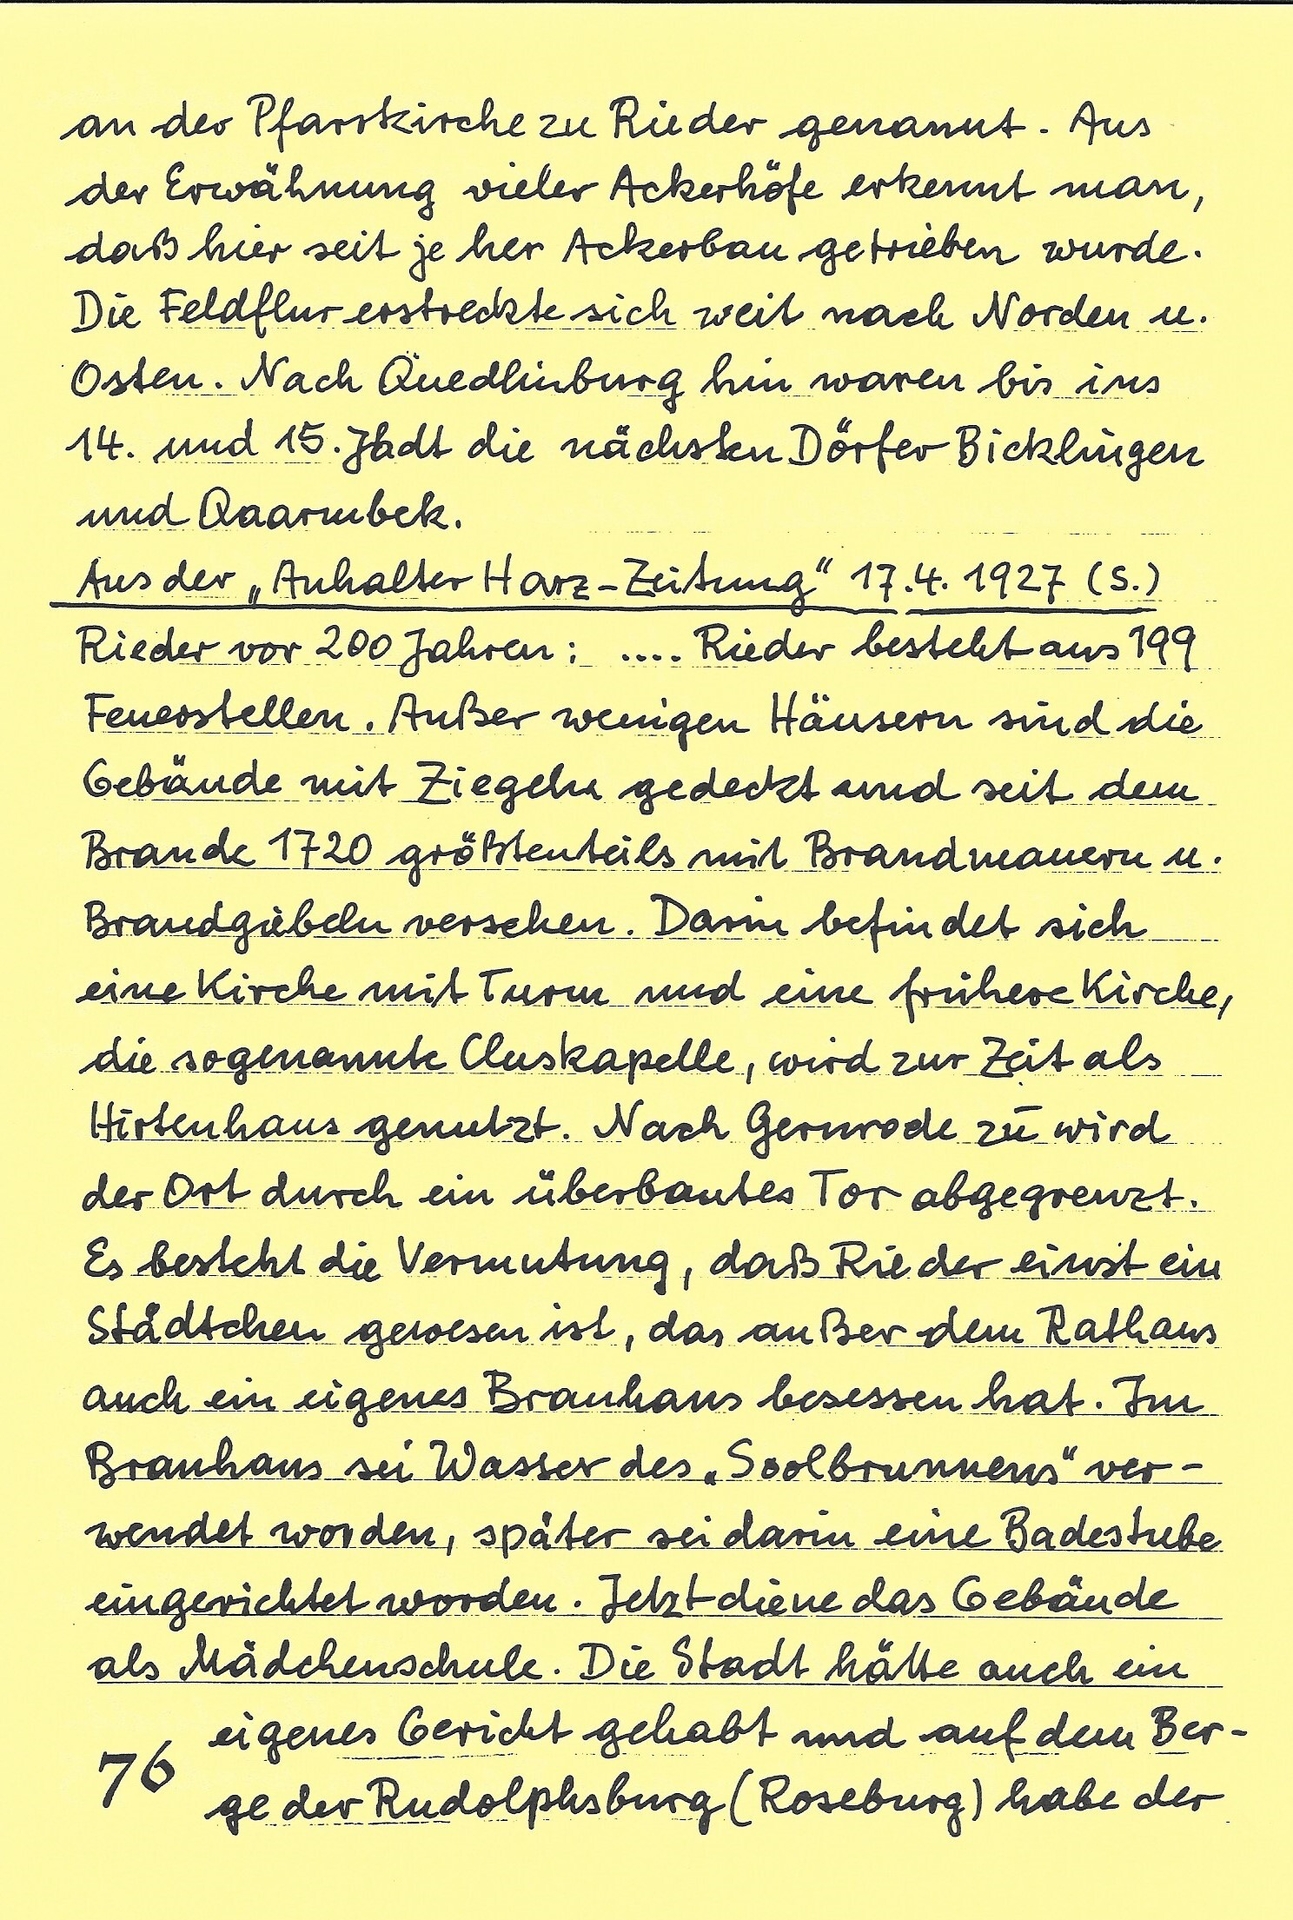 an der Pfarrkirche zu Rieder genannt. Aus
der Erwähnung vieler Ackerhöfe erkennt man,
daß hier seit je her Ackerbau getrieben wurde.
Die Feldflur erstreckte sich weit nach Norden u.
Osten. Nach Quedlinburg hin waren bis ins
14. und 15. Jhdt die nächsten Dörfer Bicklingen
und Qaarmbek.
Aus der „Anhalter Harz-Zeitung“ 17.4.1927 (S.)
Rieder vor 200 Jahren: .... Rieder besteht aus 199
Feuerstellen. Außer wenigen Häusern sind die
Gebäude mit Ziegeln gedeckt und seit dem
Brande 1720 größtenteils mit Brandmauern u.
Brandgiebeln versehen. Darin befindet sich
eine Kirche mit Turm und eine frühere Kirche,
die sogenannte Cluskapelle, wird zur Zeit als
Hirtenhaus genutzt. Nach Gernrode zu wird
der Ort durch ein überbautes Tor abgegrenzt.
Es besteht die Vermutung, daß Rieder einst ein
Städtchen gewesen ist, das außer dem Rathaus
auch ein eigenes Brauhaus besessen hat. Im
Brauhaus sei Wasser des „Soolbrunnens“ ver-
wendet worden, später sei darin eine Badestube
eingerichtet worden. Jetzt diene das Gebäude
als Mädchenschule. Die Stadt hätte auch ein
eigenes Gericht gehabt und auf dem Ber-
ge der Rudolphsburg (Roseburg) habe der
76